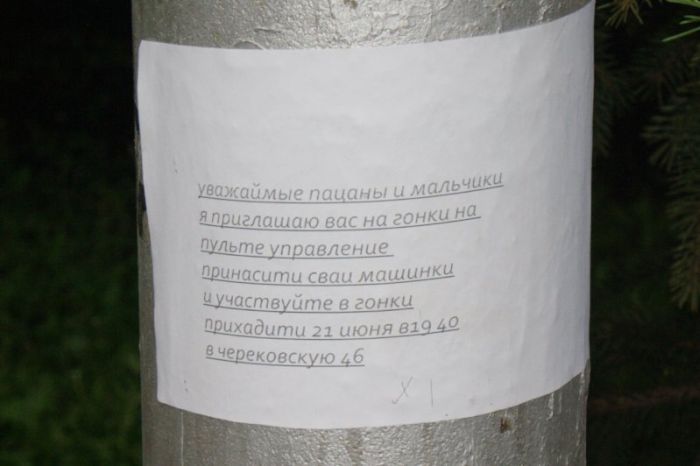 уважаймые пацаны и мальчики
я приглашаю вас на гонки на
пульте управление
принасити сваи машинки
и участвуйте в гонки
прихадити 21 июня в19 40
в черековскую 46